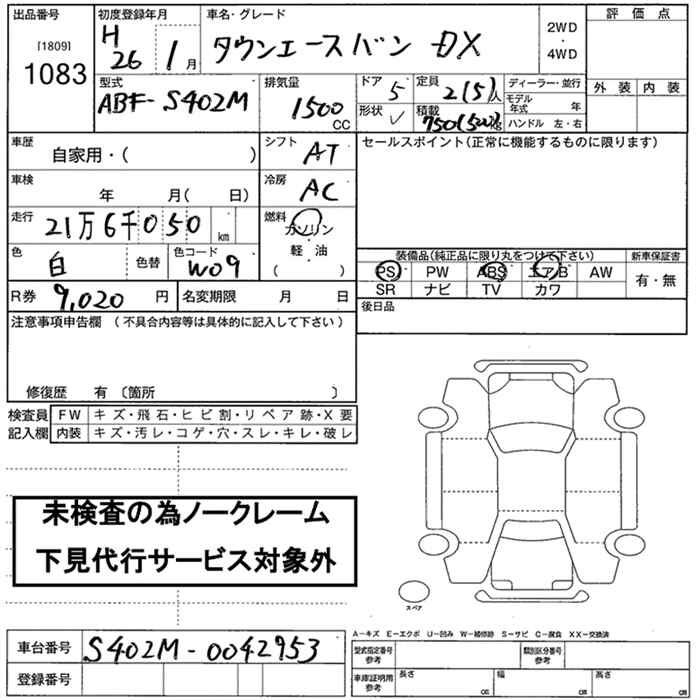 出品番号 初度登録年月 車名・グレード 評価点
[1809] 1083 H 26 1月 タウンエースバン DX 2WD・4WD
型式 排気量 ドア 5 定員 2(5)人 ディーラー・並行 外装 内装
ABF-S402M 1500 CC 形状 V 積載 750(500)kg モデル年式 年
ハンドル 左・右
車歴 シフト AT セールスポイント(正常に機能するものに限ります)
自家用・( )
車検 年 月( 日) 冷房 AC
走行 21万6千050 km 燃料 ガソリン
軽・油
( )
色 白 色替 色コード W09
装備品(純正品に限り丸をつけて下さい) 新車保証書
PS PW ABS エアB AW 有・無
SR ナビ TV カワ
R券 9,020 円 名変期限 月 日 後日品
注意事項申告欄 (不具合内容等は具体的に記入して下さい)
修復歴 有 〔箇所 〕
検査員 FW キズ・飛石・ヒビ割・リペア跡・X要
記入欄 内装 キズ・汚レ・コゲ・穴・スレ・キレ・破レ
未検査の為ノークレーム
下見代行サービス対象外
スペア
A-キズ E-エクボ U-凹み W-補修跡 S-サビ C-腐食 XX-交換済
車台番号 S402M-0042953 型式指定番号 参考 類別区分番号 参考
登録番号 車庫証明用 参考 長さ cm 幅 cm 高さ cm